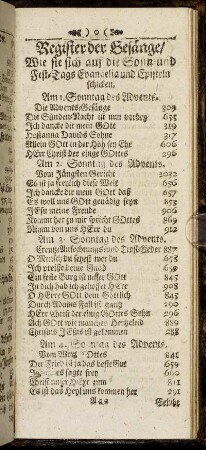 Register der Gesänge/
Wie sie sich auf die Sonn und
Fest-Tags Evangelia und Episteln
schicken.
Am 1. Sonntag des Advents.
Die Advents-Gesänge 309
Die Sünden-Nacht ist nun vorbey 635
Ich dancke dir mein GOtt 319
Hosianna Davids Sohne 317
Allein GOtt in der Höh sey Ehr 606
HErr Christ der einge GOttes 296
Am 2. Sonntag des Advents.
Vom Jüngsten Gericht 1032
Es ist ja freylich diese Welt 696
Ich dancke dir mein GOtt daß 657
Es woll uns GOtt genädig seyn 502
JEsu meine Freude 906
Kommt her zu mir spricht GOttes 869
Nimm von uns HErr du 912
Am 3. Sonntag des Advents.
Creutz Anfechtungs und Trost-Lieder 887
O Mensch du seyest wer du 658
Ich preiß dein Gnad 659
Ein feste Burg ist unser GOtt
In dich hab ich gehoffet HErr
O HErre GOtt dein Göttlich 845
Durch Adams Fall ist gantz 790
HErr Christ der einig GOttes Sohn 296
Ach GOtt wie manches Hertzeleid 889
Christus JEsus ist gekommen 288
Am 4. Sonntag des Advents.
Vom Wort Gottes 841
Der Fried ist ja das beste Gut 659
660
Christ unser HErr zum 811
Es ist das Heyl uns kommen her 791